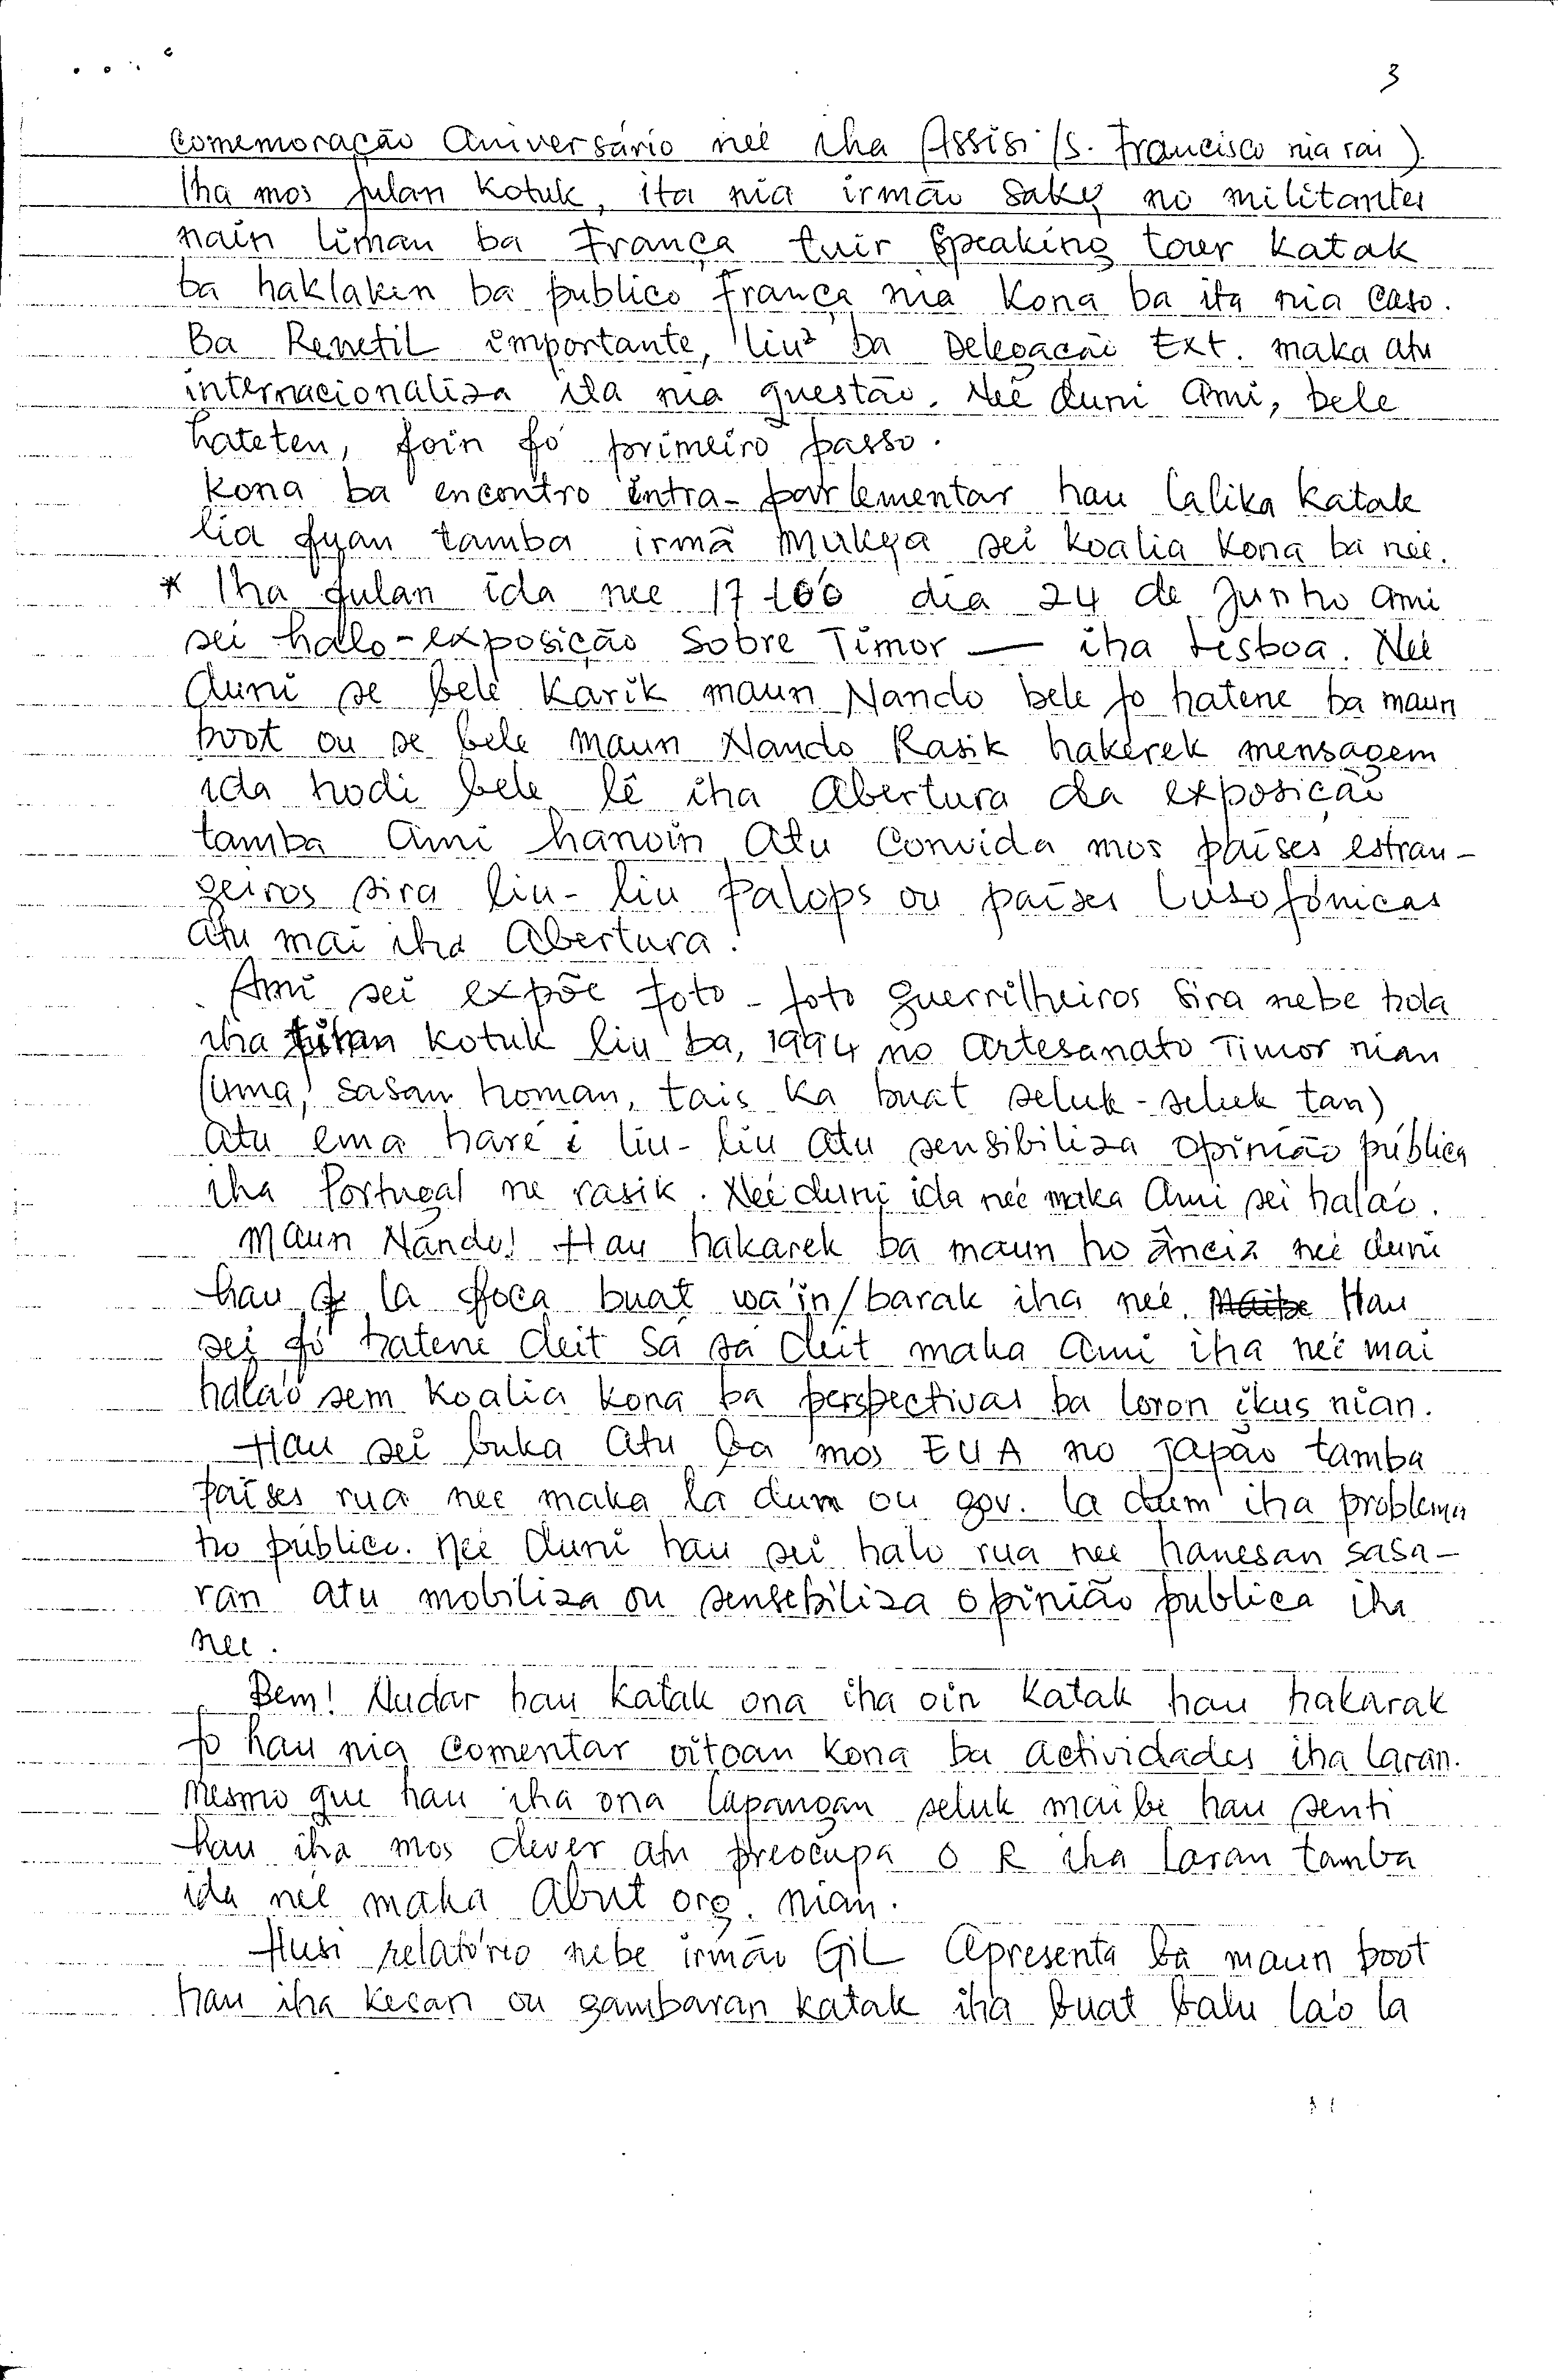 3
Comemoração Aniversário neé iha Assisi (S. Francisco nia rai).
Iha mos fulan kotuk, ita nia irmão Saky no militantes
nain liman ba França tuir Speaking tour katak
ba haklaken ba publico França nia kona ba ita nia caso.
Ba Renetil importante, liu² ba Delegacão Ext. maka atu
internacionaliza ita nia questão. Neé duni ami, bele
hateten, foin fó primeiro passo.
kona ba encontro intra-parlementar hau lalika katak
lia fuan tamba irmã Mukya sei koalia kona ba neé.
* Iha fulan ida nee 17 too dia 24 de Junho ami
sei halo-exposição Sobre Timor — iha Lisboa. Neé
duni se bele karik maun Nando bele fo hatene ba maun
boot ou se bele maun Nando Rasik hakerek mensagem
ida hodi bele lê iha Abertura da exposição
tamba Ami hanoin Atu Convida mos países estran-
geiros sira liu-liu Palops ou países Lusofónicas
atu mai iha Abertura.
Ami sei expõe foto-foto guerrilheiros Sira nebe hola
iha kotuk liu ba, 1994 no Artesanato Timor nian
(uma, sasan homan, tais ka buat seluk-seluk tan)
Atu ema haré i liu-liu atu sensibiliza opinião pública
iha Portugal ne rasik. Neé duni ida neé maka Ami sei hala'o.
Maun Nando! Hau hakarek ba maun ho ânsia neé duni
hau la foca buat wa'in/barak iha neé. Maibe Hau
sei fó hatene deit Sá sá deit maka Ami iha neé mai
hala'o sem koalia kona ba perspectivas ba loron ikus nian.
Hau sei buka Atu ba mos EUA no Japão tamba
países rua nee maka la dum ou gov. la dum iha problema
ho público. Neé duni hau sei halo rua nee hanesan sasa-
ran atu mobiliza ou sensebiliza opinião publica iha
nee.
Bem! Nudar hau katak ona iha oin katak hau hakarak
fo hau nia Comentar oitoan kona ba actividades iha laran.
Mesmo que hau iha ona lapangan seluk maibe hau senti
hau iha mos dever atu preocupa O R iha laran tamba
ida neé maka Abut org. nian.
Husi relatório nebe irmão Gil Apresenta ba maun boot
hau iha kesan ou gambaran katak iha buat balu la'o la